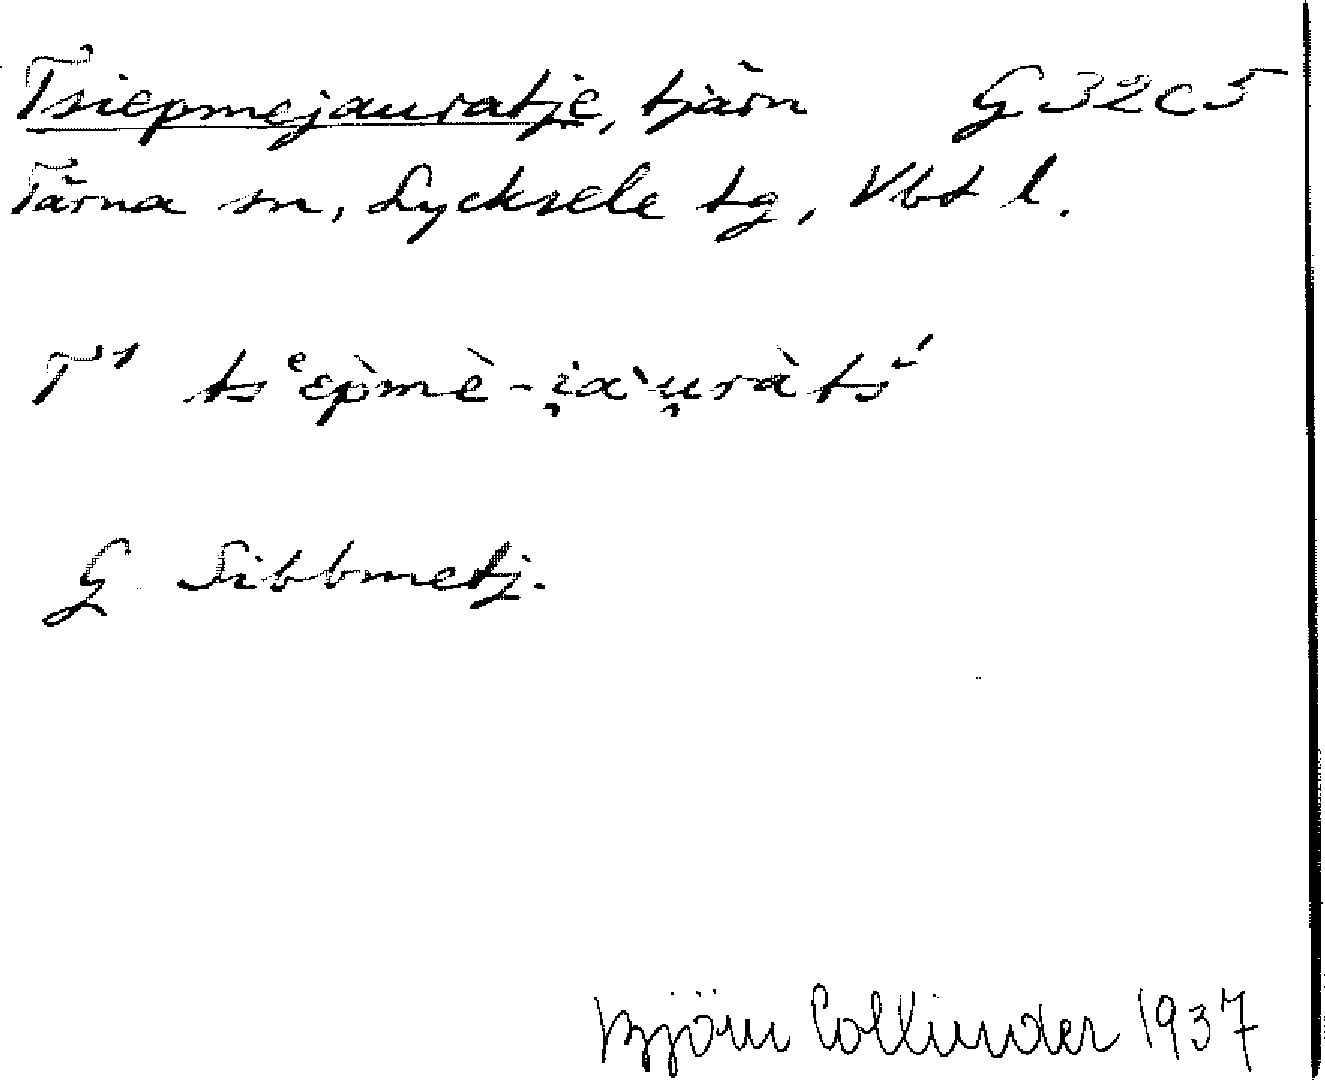 Tsiepmejauratje, tjärn G 32 C 5
Tärna sn, Lycksele tg, Vbt l.
T¹ tsᵉɛp̀mè-i̯a`u̯ràtś
G Sibbmetj.
Björn Collinder 1937